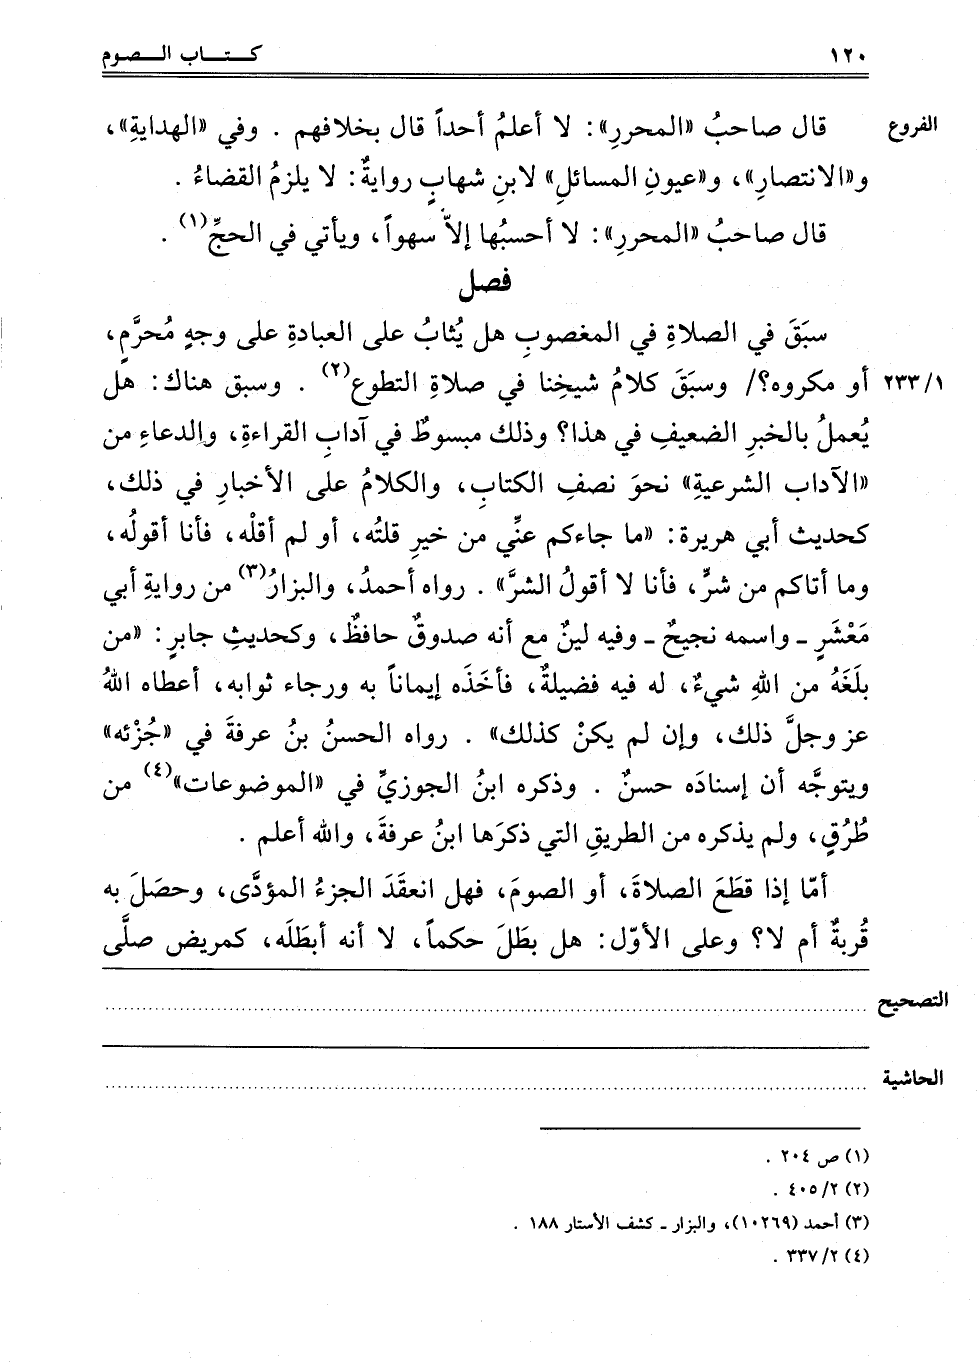 ١٢٠ كـــتـــاب الـــصـــوم
الفروع قال صاحبُ «المحررِ»: لا أعلمُ أحداً قال بخلافهم . وفي «الهدايةِ»،
و«الانتصارِ»، و«عيونِ المسائلِ» لابنِ شهابٍ روايةٌ: لا يلزمُ القضاءُ .
قال صاحبُ «المحررِ»: لا أحسبُها إلاّ سهواً، ويأتي في الحجِّ(١) .
فصل
سبَقَ في الصلاةِ في المغصوبِ هل يُثابُ على العبادةِ على وجهٍ مُحرَّمٍ،
٢٣٣/١ أو مكروه؟/ وسبَقَ كلامُ شيخِنا في صلاةِ التطوع(٢) . وسبق هناك: هل
يُعملُ بالخبرِ الضعيفِ في هذا؟ وذلك مبسوطٌ في آدابِ القراءةِ، والدعاءِ من
«الآداب الشرعيةِ» نحوَ نصفِ الكتابِ، والكلامُ على الأخبارِ في ذلك،
كحديث أبي هريرة: «ما جاءكم عنِّي من خيرٍ قلتُه، أو لم أقلْه، فأنا أقولُه،
وما أتاكم من شرٍّ، فأنا لا أقولُ الشرَّ» . رواه أحمدُ، والبزارُ(٣) من روايةِ أبي
مَعْشَرٍ ـ واسمه نجيحٌ ـ وفيه لينٌ مع أنه صدوقٌ حافظٌ، وكحديثِ جابرٍ: «من
بلَغَهُ من اللهِ شيءٌ، له فيه فضيلةٌ، فأخَذَه إيماناً به ورجاء ثوابه، أعطاه اللهُ
عز وجلَّ ذلك، وإن لم يكنْ كذلك» . رواه الحسنُ بنُ عرفةَ في «جُزْئه»
ويتوجَّه أن إسنادَه حسنٌ . وذكره ابنُ الجوزيِّ في «الموضوعات»(٤) من
طُرُقٍ، ولم يذكره من الطريقِ التي ذكرَها ابنُ عرفةَ، والله أعلم .
أمّا إذا قطَعَ الصلاةَ، أو الصومَ، فهل انعقَدَ الجزءُ المؤدَّى، وحصَلَ به
قُربةٌ أم لا؟ وعلى الأوّل: هل بطَلَ حكماً، لا أنه أبطَلَه، كمريض صلَّى
التصحيح
الحاشية
(١) ص ٢٠٤ .
(٢) ٤٠٥/٢ .
(٣) أحمد (١٠٢٦٩)، والبزار ـ كشف الأستار ١٨٨ .
(٤) ٣٣٧/٢ .